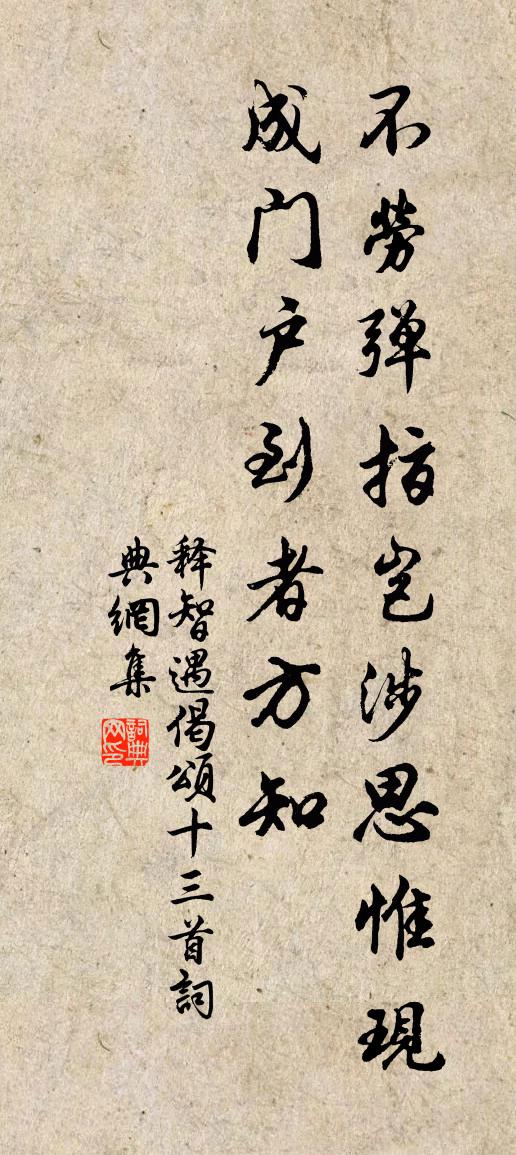 不勞弹指岂涉思惟現
成门户到者方知
释智遇偈頌十三首詞
典網集
詞典網印